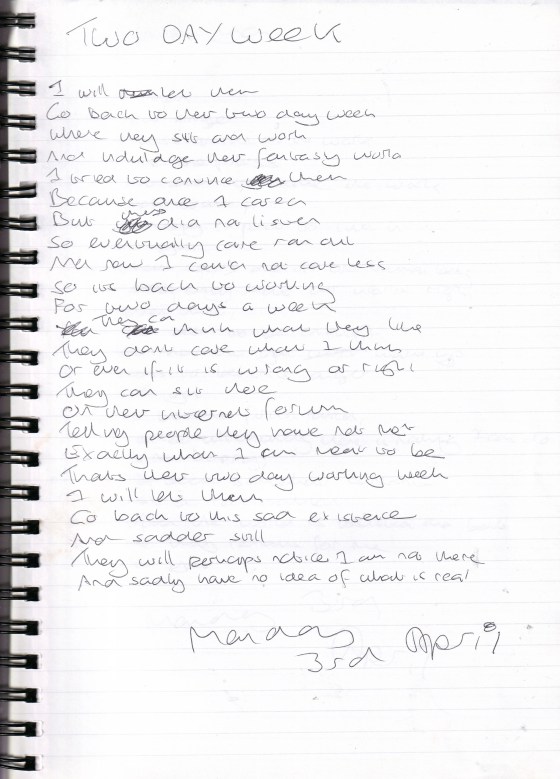 TWO DAY WEEK
I will let them
Go back to their two day week
Where they sit and work
And indulge their fantasy world
I tried to convince them
Because once I cared
But they did not listen
So eventually care ran out
And now I could not care less
So its back to working
For two days a week
They can think what they like
They dont care what I think
Or even if it is wrong or right
They can sit there
On their internet forum
Telling people they have not met
Exactly what I am meant to be
Thats their two day working week
I will let them
Go back to this sad existence
And sadder still
They will perhaps notice I am not there
And sadly have no idea of what is real
Monday
3rd April